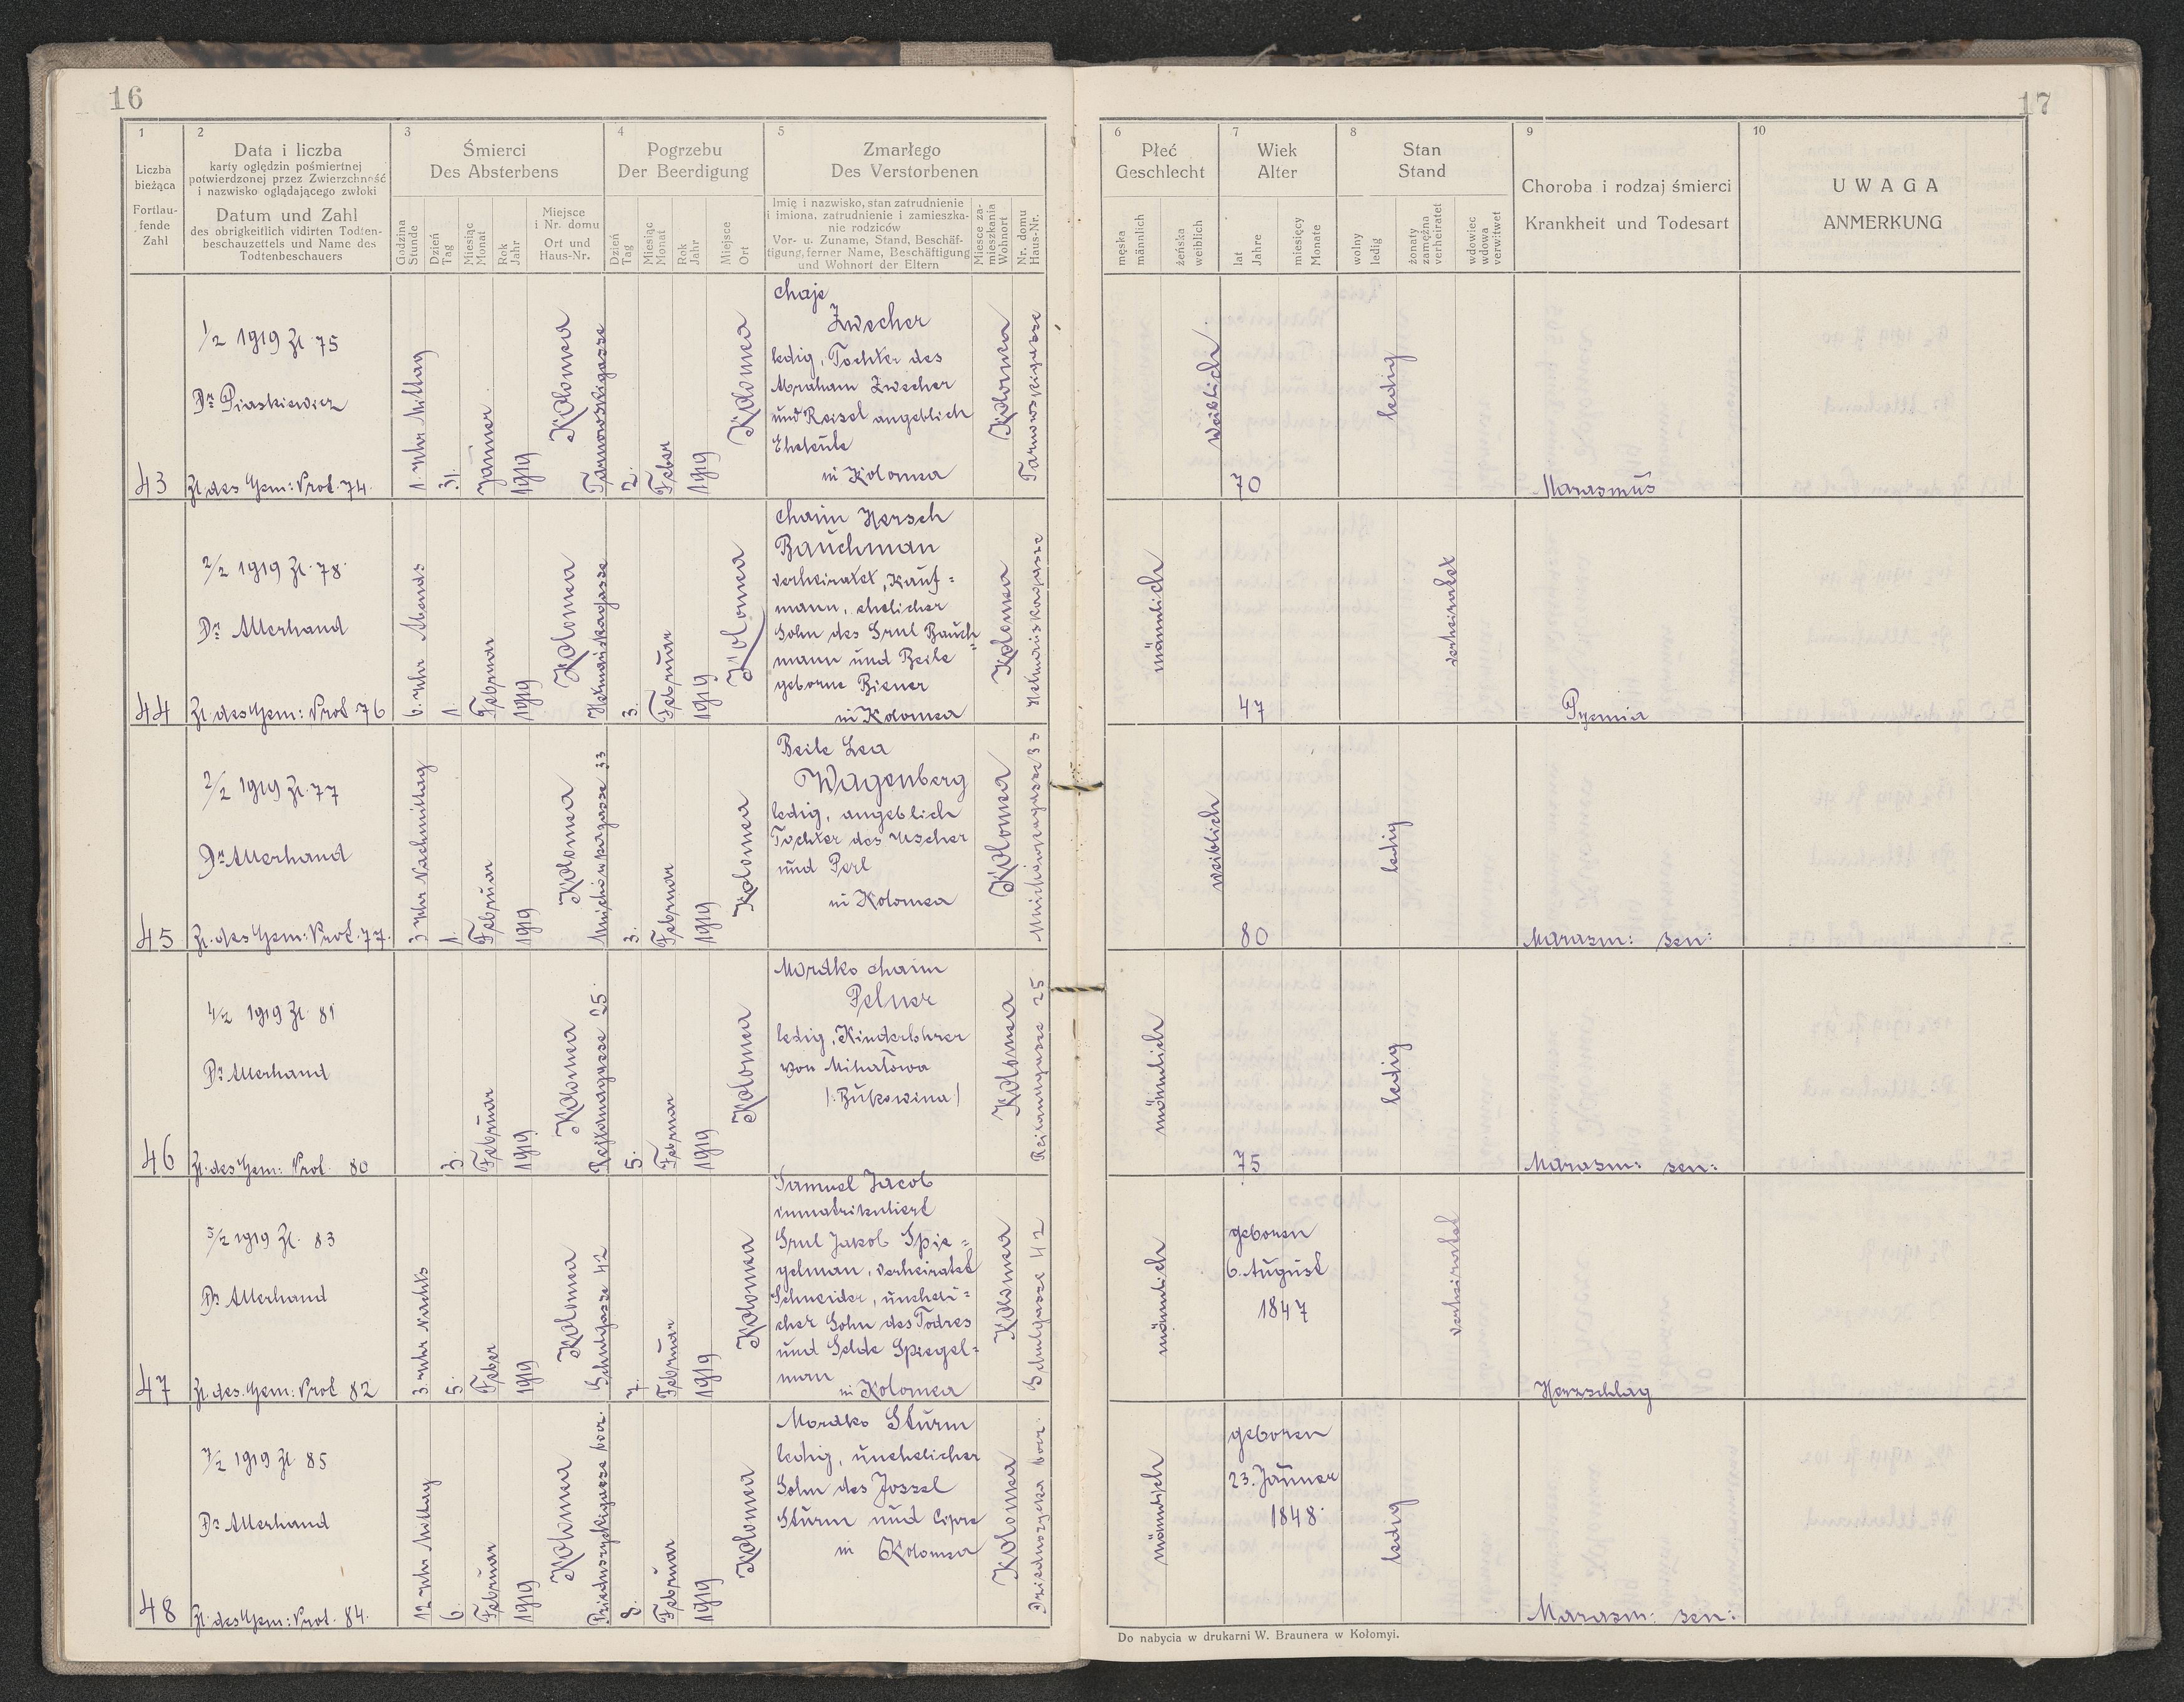 16
17
1
Liczba
bieżąca
Fortlau-
fende
Zahl
2
Data i liczba
karty oględzin pośmiertnej
potwierdzonej przez Zwierzchność
i nazwisko oglądającego zwłoki
Datum und Zahl
des obrigkeitlich vidirten Todten-
beschauzettels und Name des
Todtenbeschauers
3
Śmierci
Des Absterbens
Godzina
Stunde
Dzień
Tag
Miesiąc
Monat
Rok
Jahr
Miejsce
i Nr. domu
Ort und
Haus-Nr.
4
Pogrzebu
Der Beerdigung
Dzień
Tag
Miesiąc
Monat
Rok
Jahr
Miejsce
Ort
5
Zmarłego
Des Verstorbenen
Imię i nazwisko, stan zatrudnienie
i imiona, zatrudnienie i zamieszka-
nie rodziców
Vor- u. Zuname, Stand, Beschäf-
tigung, ferner Name, Beschäftigung
und Wohnort der Eltern
Miesce za-
mieszkania
Wohnort
Nr. domu
Haus-Nr.
6
Płeć
Geschlecht
męska
männlich
żeńska
weiblich
7
Wiek
Alter
lat
Jahre
miesięcy
Monate
8
Stan
Stand
wolny
ledig
żonaty
zamężna
verheiratet
wdowiec
wdowa
verwitwet
9
Choroba i rodzaj śmierci
Krankheit und Todesart
10
UWAGA
ANMERKUNG
43
1/2 1919 Zl. 75
Dr Piaskiewicz
Zl. des Gem: Prot. 74.
1. Uhr Mittag
31.
Jänner
1919
Kolomea
Tarnowskigasse
2.
Feber
1919
Kolomea
Chaje
Zwecher
ledig, Tochter des
Abraham Zwecher
und Reisel angeblich
Eheleute
in Kolomea
Kolomea
Tarnowskigasse
weiblich
70
ledig
Marasmus
44
2/2 1919 Zl. 78
Dr Allerhand
Zl. des Gem: Prot 76
6. Uhr Abends
1.
Februar
1919
Kolomea
3.
Februar
1919
Kolomea
Chaim Hersch
Bauchman
verheiratet, Kauf=
mann, ehelicher
Sohn des Srul Bauch=
mann und Beile
geborne Biener
in Kolomea
Kolomea
männlich
47
verheiratet
Pyemia
45
2/2 1919 Zl. 77
Dr Allerhand
Zl. des Gem: Prot. 77.
3 Uhr Nachmittag
1.
Februar
1919
Kolomea
3.
Februar
1919
Kolomea
Beile Lea
Wagenberg
ledig, angeblich
Tochter des Uscher
und Perl
in Kolomea
Kolomea
weiblich
80
ledig
Marasm: sen:
46
4/2 1919 Zl. 81
Dr Allerhand
Zl. des Gem: Prot. 80
3.
Februar
1919
Kolomea
Rejtanagasse 25
5.
Februar
1919
Kolomea
Mordko Chaim
Pelner
ledig, Kinderlehrer
von Mihatowa
(: Bukowina)
Kolomea
Reitanagasse 25
männlich
75
ledig
Marasm: sen:
47
5/2 1919 Zl. 83
Dr Allerhand
Zl. des. Gem: Prot 82
3. Uhr Nachts
5.
Feber
1919
Kolomea
Schulgasse 42
7.
Februar
1919
Kolomea
Samuel Jacob
immatrikuliert
Srul Jakob Spie=
gelman, verheiratet
Schneider, uneheli=
cher Sohn des Todres
und Selde Spiegel=
man
in Kolomea
Kolomea
Schulgasse 42
männlich
geboren
6. August
1847
verheiratet
Herzschlag
48
7/2 1919 Zl 85
Dr Allerhand
Zl. des Gem: Prot. 84.
12 Uhr Mittag
6.
Februar
1919
Kolomea
8.
Februar
1919
Kolomea
Mordko Sturm
ledig, unehelicher
Sohn des Jossel
Sturm und Cipre
in Kolomea
Kolomea
männlich
geboren
23. Jänner
1848
ledig
Marasm: sen:
Do nabycia w drukarni W. Braunera w Kołomyi.